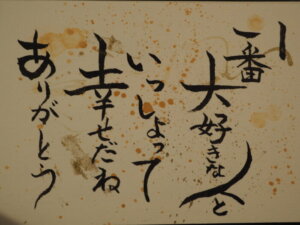 一番
大好きな人と
いっしょって
幸せだね
ありがとう